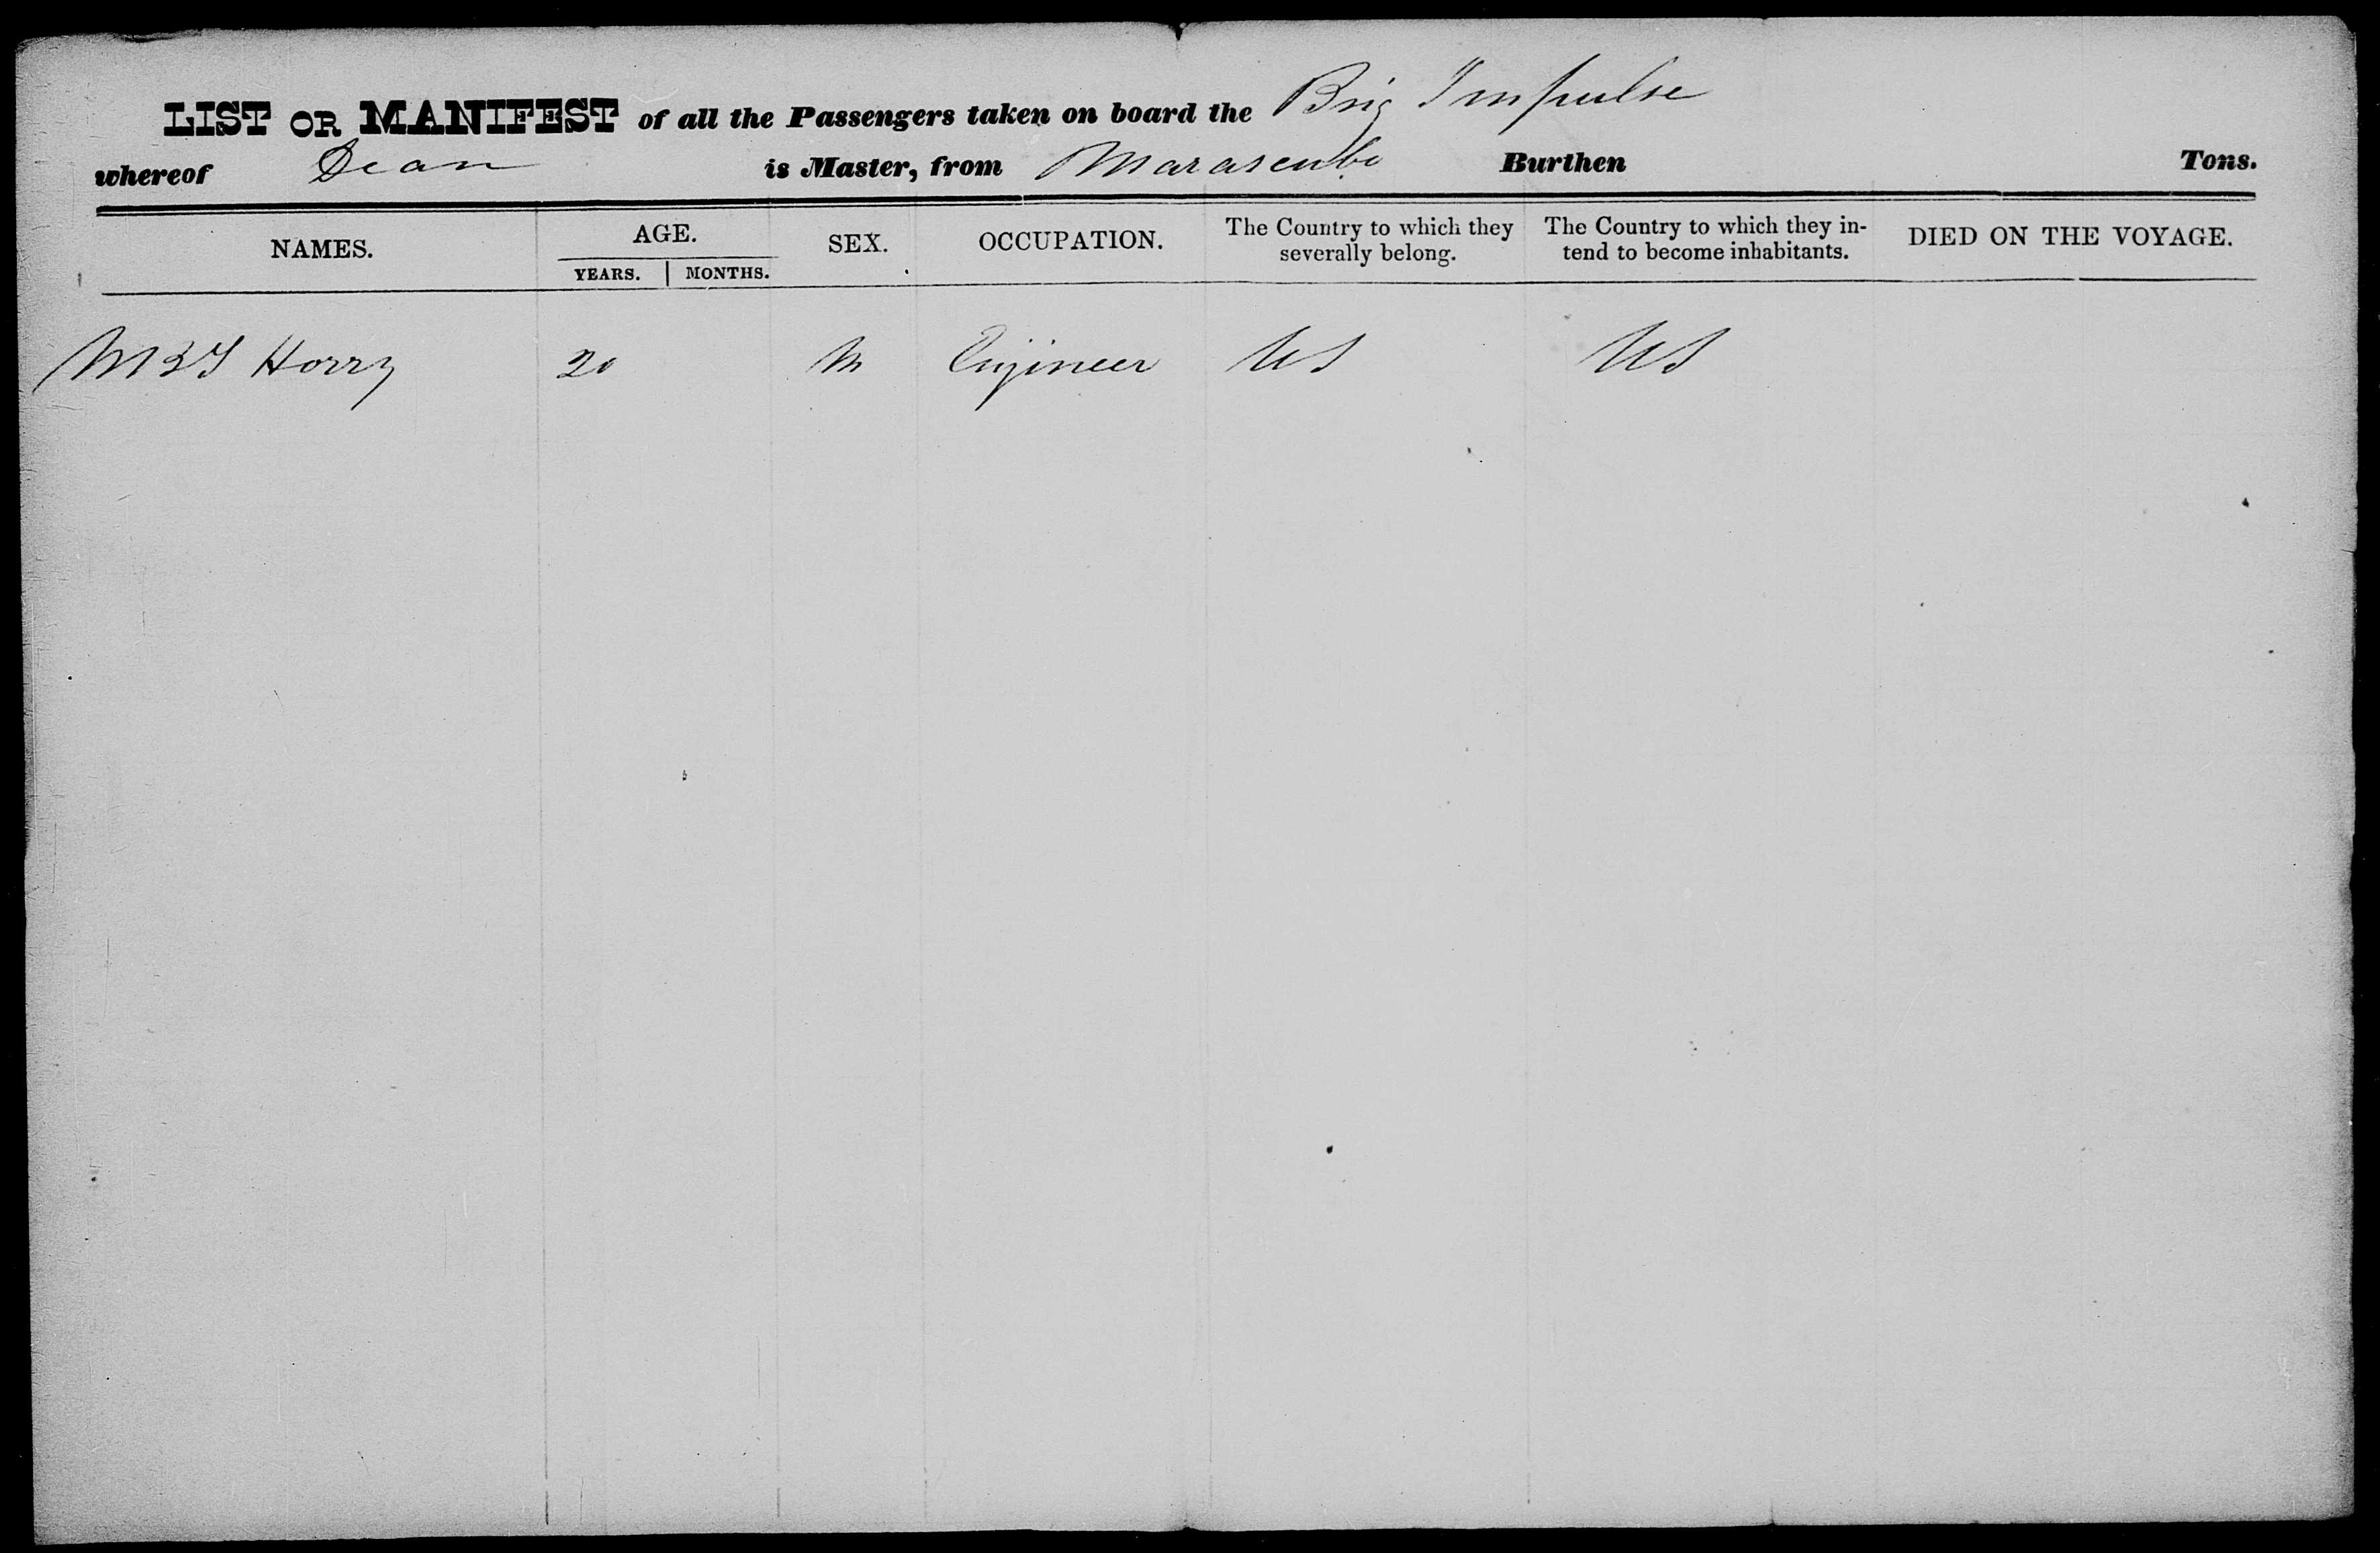 LIST OR MANIFEST of all the Passengers taken on board the Brig Impulse
whereof Dean is Master, from Marascubo Burthen Tons.
NAMES. AGE. SEX. OCCUPATION. The Country to which they severally belong. The Country to which they in- tend to become inhabitants. DIED ON THE VOYAGE.
YEARS. MONTHS.
Horry 20 M Engineer US US